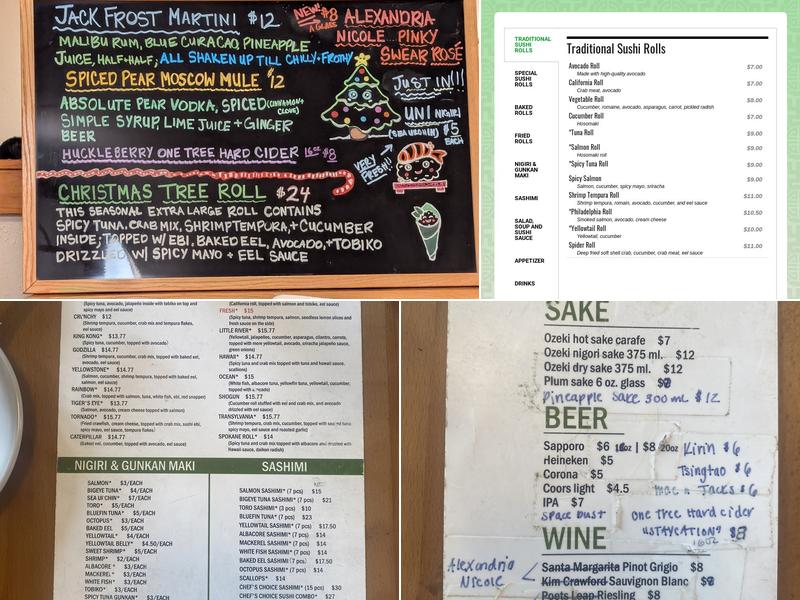 JACK FROST MARTINI $12
MALIBU RUM, BLUE CURACAO, PINEAPPLE
JUICE, HALF+HALF; ALL SHAKEN UP TILL CHILLY+FROTHY
SPICED PEAR MOSCOW MULE $12
ABSOLUTE PEAR VODKA, SPICED (CINNAMON+ CLOVE)
SIMPLE SYRUP, LIME JUICE + GINGER
BEER
HUCKLEBERRY ONE TREE HARD CIDER 16oz $8
NEW! $8 A GLASS
ALEXANDRIA
NICOLE PINKY
SWEAR ROSÉ
JUST IN!!!
UNI NIGIRI
(SEA URCHIN) $5 EACH
VERY FRESH!!
CHRISTMAS TREE ROLL $24
THIS SEASONAL EXTRA LARGE ROLL CONTAINS
SPICY TUNA, CRAB MIX, SHRIMP TEMPURA, + CUCUMBER
INSIDE; TOPPED W/ EBI, BAKED EEL, AVOCADO, + TOBIKO
DRIZZLED W/ SPICY MAYO + EEL SAUCE
TRADITIONAL SUSHI ROLLS
SPECIAL SUSHI ROLLS
BAKED ROLLS
FRIED ROLLS
NIGIRI & GUNKAN MAKI
SASHIMI
SALAD, SOUP AND SUSHI SAUCE
APPETIZER
DRINKS
Traditional Sushi Rolls
Avocado Roll $7.00
Made with high-quality avocado
California Roll $7.00
Crab meat, avocado
Vegetable Roll $8.00
Cucumber, romaine, avocado, asparagus, carrot, pickled radish
Cucumber Roll $7.00
Hosomaki
*Tuna Roll $9.00
*Salmon Roll $9.00
Hosomaki roll
*Spicy Tuna Roll $9.00
Spicy Salmon $9.00
Salmon, cucumber, spicy mayo, sriracha
Shrimp Tempura Roll $11.00
Shrimp tempura, romain, avocado, cucumber, and eel sauce
*Philadelphia Roll $10.50
Smoked salmon, avocado, cream cheese
*Yellowtail Roll $10.00
Yellowtail, cucumber
Spider Roll $11.00
Deep fried soft shell crab, cucumber, crab meat, eel sauce
(Spicy tuna, avocado, jalapeño inside with tobiko on top and
spicy mayo and eel sauce)
CRUNCHY $12
(Shrimp tempura, cucumber, crab mix and tempura flakes,
eel sauce)
KING KONG* $13.77
(Spicy tuna, cucumber, topped with avocado)
GODZILLA $14.77
(Shrimp tempura, cucumber, crab mix, topped with baked eel,
avocado, eel sauce)
YELLOWSTONE* $14.77
(Salmon, cucumber, shrimp tempura, topped with baked eel,
salmon, eel sauce)
RAINBOW* $14.77
(Crab mix, topped with salmon, tuna, white fish, ebi, red snapper)
TIGER'S EYE* $13.77
(Salmon, avocado, cream cheese topped with salmon)
TORNADO* $15.77
(Fried crawfish, cream cheese, topped with crab mix, sushi ebi,
avocado, eel sauce)
CATERPILLAR $14.77
(Baked eel, cucumber, topped with avocado, eel sauce)
(California roll, topped with salmon and tobiko, eel sauce)
FRESH* $15
(Spicy tuna, shrimp tempura, salmon, seedless lemon slices and
fresh sauce on the side)
LITTLE RIVER* $15.77
(Yellowtail, jalapeños, cucumber, asparagus, cilantro, carrots,
topped with more yellowtail, avocado, sriracha jalapeño sauce,
green onions)
HAWAII* $14.77
(Spicy tuna and crab mix topped with tuna and hawaii sauce,
scallions)
OCEAN* $15
(White fish, albacore tuna, yellowfin tuna, yellowtail, cucumber,
topped with avocado)
SHOGUN $15.77
(Cucumber roll stuffed with eel and crab mix, and avocado
drizzled with eel sauce)
TRANSYLVANIA* $15.77
(Shrimp tempura, cucumber, crab mix, topped with seared tuna
spicy mayo, eel sauce and roasted garlic)
SPOKANE ROLL* $14
(Spicy tuna and crab mix topped with albacore and drizzled with
Hawaii sauce, daikon radish)
NIGIRI & GUNKAN MAKI
SALMON* $3/EACH
BIGEYE TUNA* $4/EACH
SEA UICHIN* $7/EACH
TORO* $5/EACH
BLUEFIN TUNA* $5/EACH
OCTOPUS* $3/EACH
BAKED EEL $5/EACH
YELLOWTAIL* $4/EACH
YELLOWTAIL BELLY* $4.50/EACH
SWEET SHRIMP* $5/EACH
SHRIMP* $2/EACH
ALBACORE* $3/EACH
MACKEREL* $3/EACH
WHITE FISH* $3/EACH
TOBIKO* $3/EACH
SPICY TUNA GUNKAN* $3/EACH
SASHIMI
SALMON SASHIMI* (7 pcs) $15
BIGEYE TUNA SASHIMI* (7 pcs) $21
TORO SASHIMI* (3 pcs) $10
BLUEFIN TUNA* (7 pcs) $23
YELLOWTAIL SASHIMI* (7 pcs) $17.50
ALBACORE SASHIMI* (7 pcs) $14
MACKEREL SASHIMI* (7 pcs) $14
WHITE FISH SASHIMI* (7 pcs) $14
BAKED EEL SASHIMI (7 pcs) $17.50
OCTOPUS SASHIMI (7 pcs) $14
SCALLOPS* $14
CHEF'S CHOICE SASHIMI* (15 pcs) $30
CHEF'S CHOICE SUSHI COMBO* $27
SAKE
Ozeki hot sake carafe $7
Ozeki nigori sake 375 ml. $12
Ozeki dry sake 375 ml. $12
Plum sake 6 oz. glass
Pineapple sake 300 mL $12
BEER
Sapporo $6 16oz | $8 20oz Kirin $6
Heineken $5 Tsingtao $6
Corona $5
Coors light $4.5 mac n Jacks $6
IPA $7
space Dust
one tree Hard cider
"STAYCATION" $8
16oz
WINE
Alexandria Nicole
Santa Margarita Pinot Grigio $8
Kim Crawford Sauvignon Blanc
Poets Leap Riesling $8